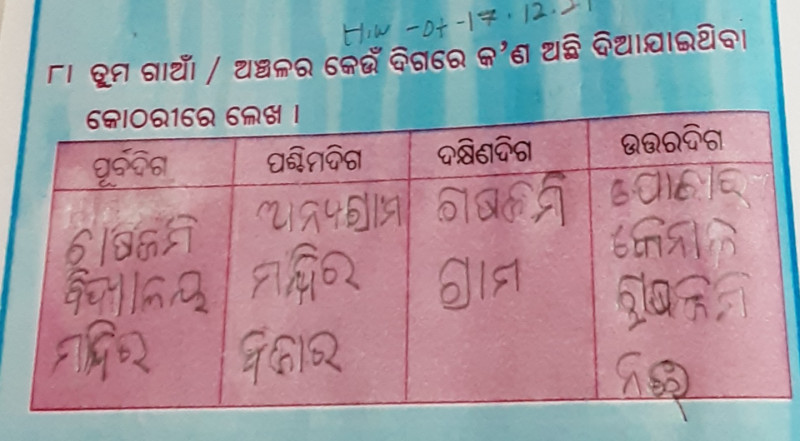 H.W - Dt - 17.12.21
୮। ତୁମ ଗାଆଁ / ଅଞ୍ଚଳର କେଉଁ ଦିଗରେ କ'ଣ ଅଛି ଦିଆଯାଇଥିବା
କୋଠରୀରେ ଲେଖ ।
ପୂର୍ବଦିଗ ପଶ୍ଚିମଦିଗ ଦକ୍ଷିଣଦିଗ ଉତ୍ତରଦିଗ
ଚାଷଜମି ଅନ୍ୟଗ୍ରାମ ଚାଷଜମି ପୋଖରୀ
ବିଦ୍ୟାଳୟ ମନ୍ଦିର ଗ୍ରାମ କେନାଲ
ମନ୍ଦିର ବଜାର ଚାଷଜମି
ନଈ